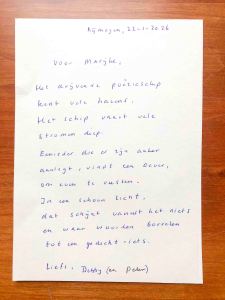 Nijmegen, 22-1-2026
Voor Marijke,
Het drijvend poëzieschip
kent vele havens,
Het schip vaart vele
stromen diep.
Eenieder die er zijn anker
aanlegt, vindt een oever,
om even te rusten.
In een schoon licht,
dat schijnt vanuit het niets
en waar woorden borrelen
tot een gedicht-iets.
Liefs, (en Peter)